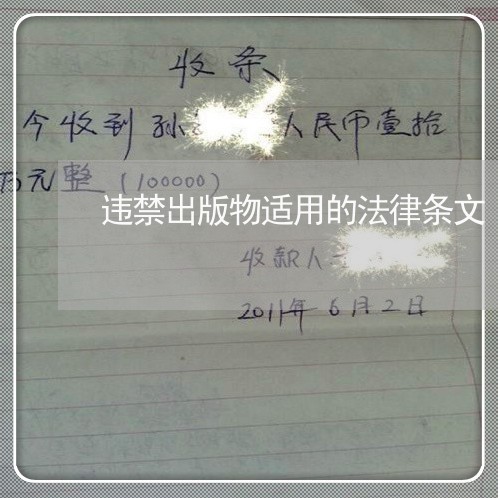 收条
今收到孙 人民币壹拾
万元整（100000）
违禁出版物适用的法律条文
收款人
2011年6月2日